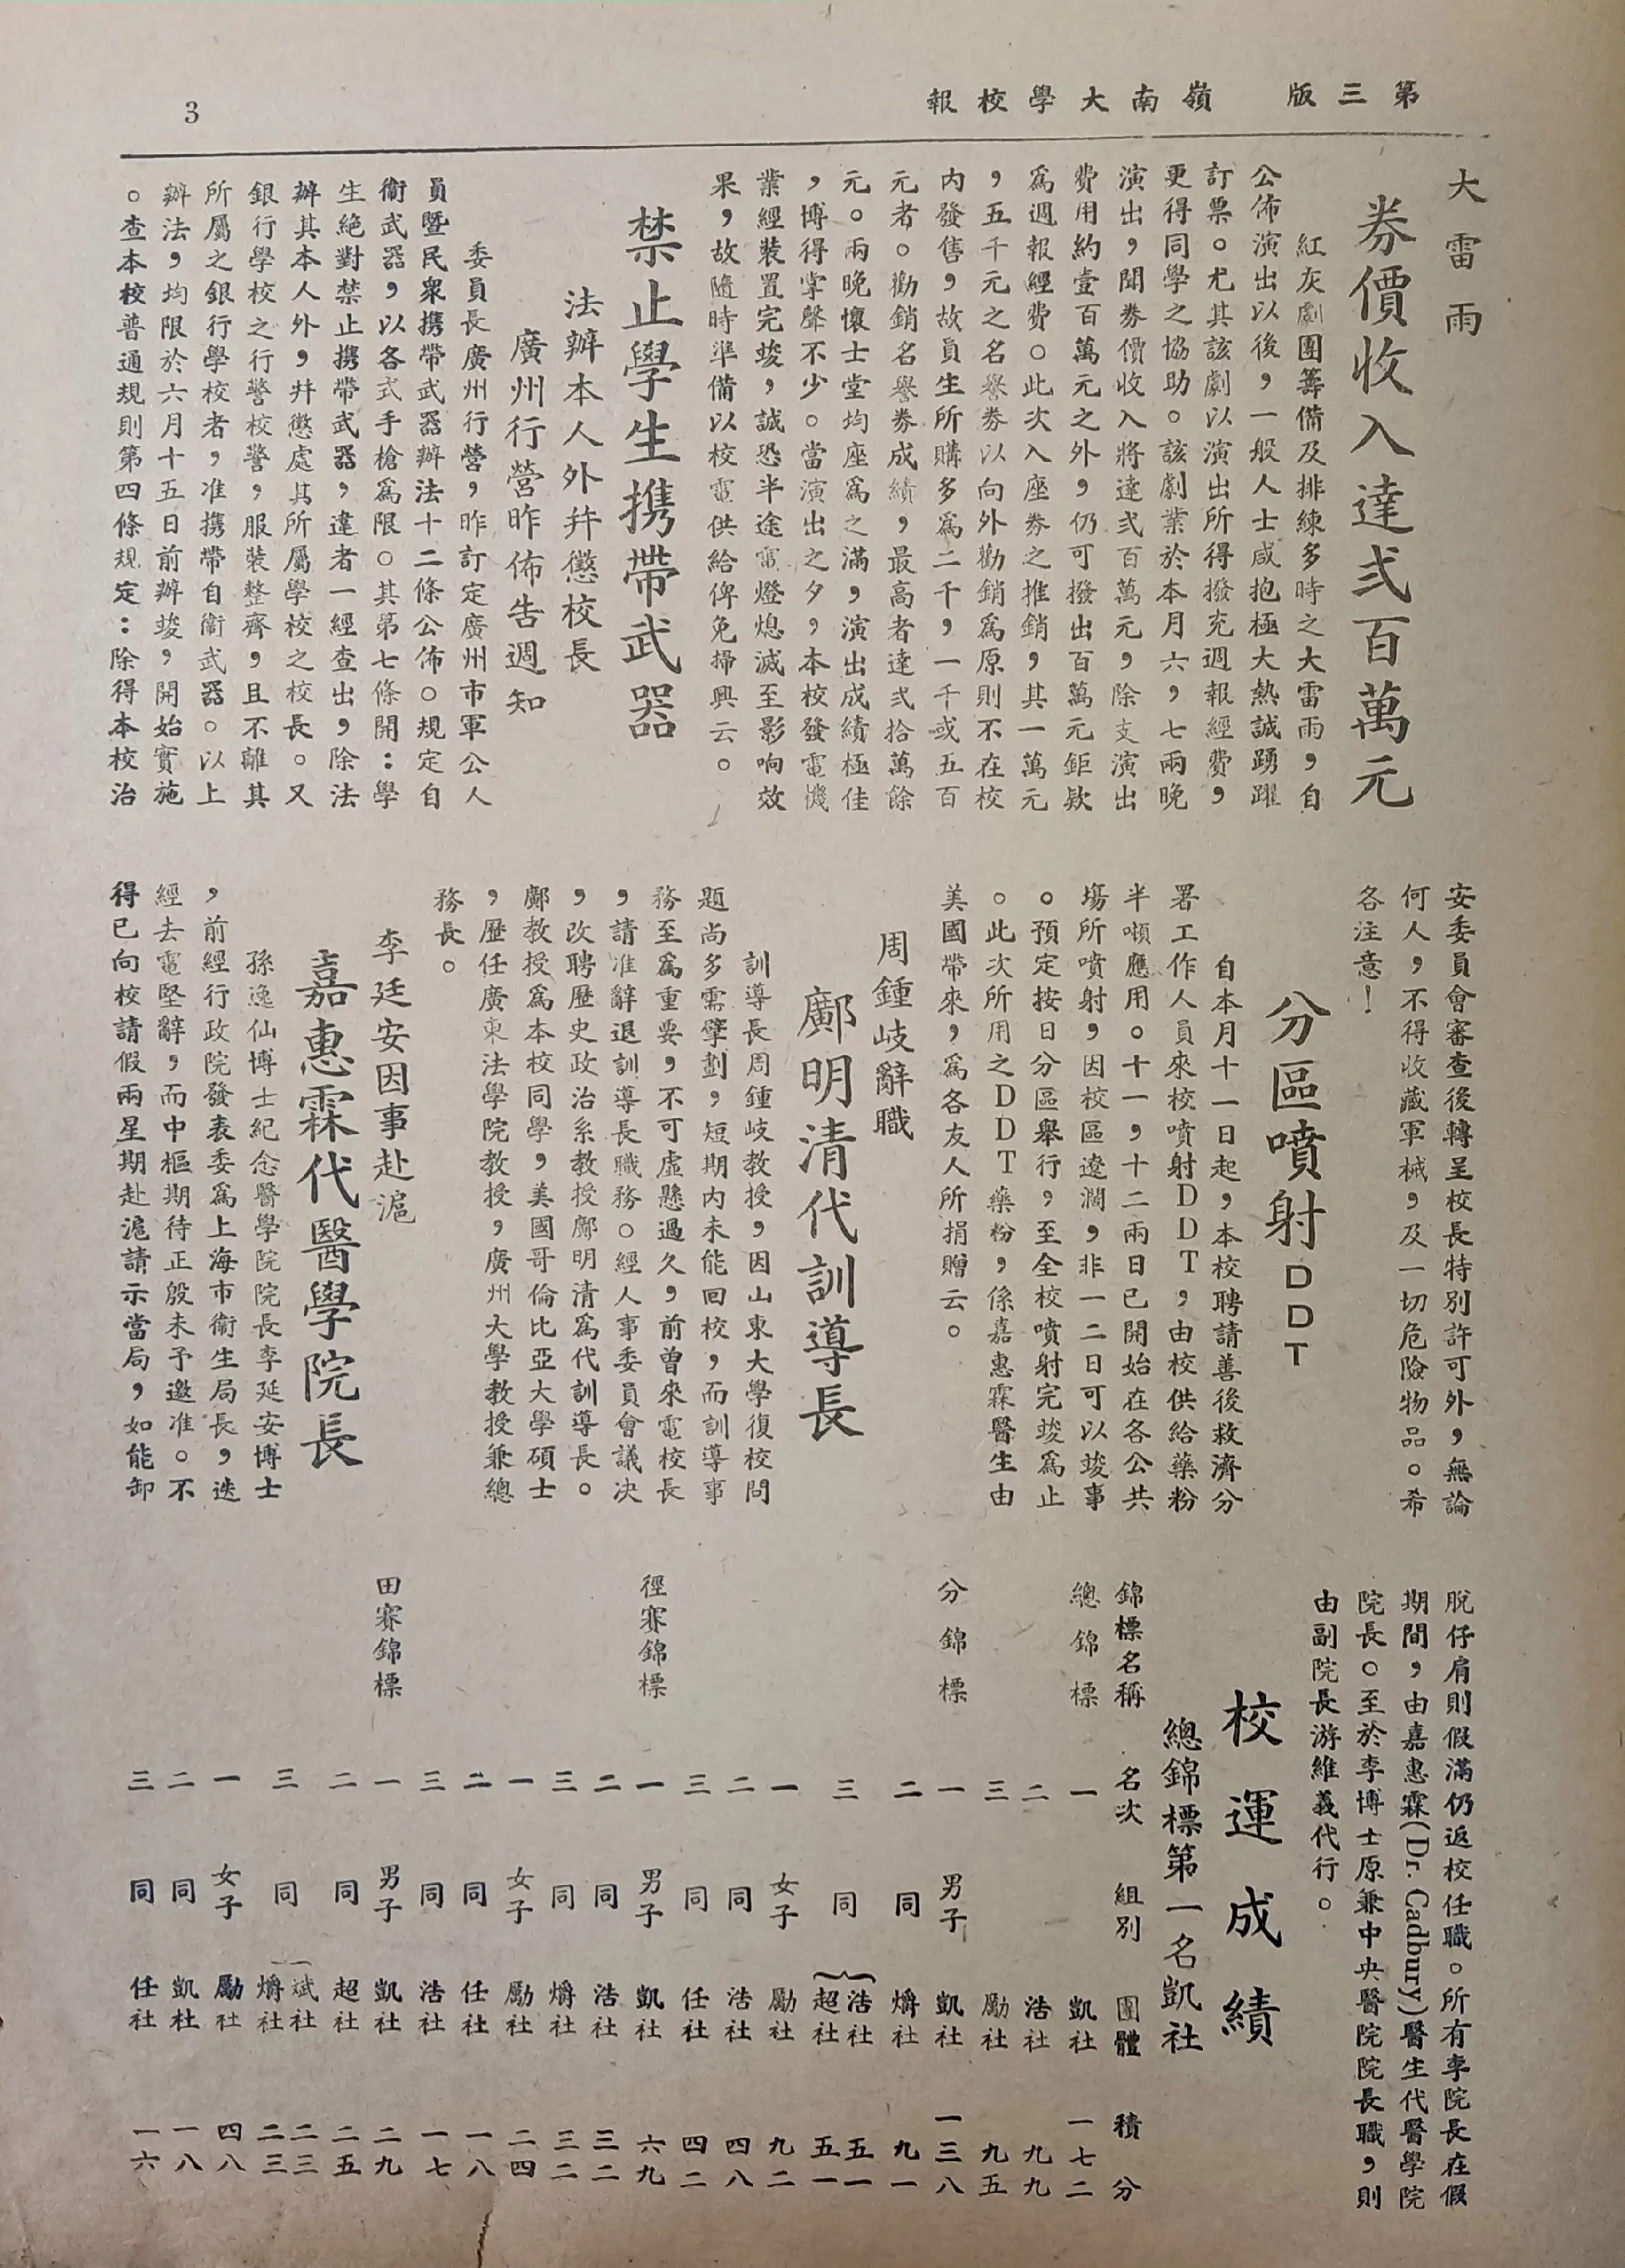 第三版　嶺南大學校報
3
大雷雨
券價收入達弍百萬元
紅灰劇團籌備及排練多時之大雷雨，自
公佈演出以後，一般人士咸抱極大熱誠踴躍
訂票。尤其該劇以演出所得撥充週報經費，
更得同學之協助。該劇業於本月六，七兩晚
演出，聞券價收入將達弍百萬元，除支演出
費用約壹百萬元之外，仍可撥出百萬元鉅欵
爲週報經費。此次入座券之推銷，其一萬元
，五千元之名譽券以向外勸銷爲原則不在校
內發售，故員生所購多爲二千，一千或五百
元者。勸銷名譽券成績，最高者達弍拾萬餘
元。兩晚懷士堂均座爲之滿，演出成績極佳
，博得掌聲不少。當演出之夕，本校發電機
業經裝置完竣，誠恐半途電燈熄滅至影响效
果，故隨時準備以校電供給俾免掃興云。
禁止學生携帶武器
法辦本人外幷懲校長
廣州行營昨佈告週知
委員長廣州行營，昨訂定廣州市軍公人
員暨民衆携帶武器辦法十二條公佈。規定自
衞武器，以各式手槍爲限。其苐七條開：學
生絕對禁止携帶武器，違者一經查出，除法
辦其本人外，幷懲處其所屬學校之校長。又
銀行學校之行警校警，服裝整齊，且不離其
所屬之銀行學校者，准携帶自衞武器。以上
辦法，均限於六月十五日前辦竣，開始實施
。查本校普通規則第四條規定：除得本校治
安委員會審查後轉呈校長特別許可外，無論
何人，不得收藏軍械，及一切危險物品。希
各注意！
分區噴射DDT
自本月十一日起，本校聘請善後救濟分
署工作人員來校噴射DDT，由校供給藥粉
半噸應用。十一，十二兩日已開始在各公共
塲所噴射，因校區遼濶，非一二日可以竣事
。預定按日分區舉行，至全校噴射完竣爲止
。此次所用之DDT藥粉，係嘉惠霖醫生由
美國帶來，爲各友人所捐贈云。
周鍾岐辭職
鄺明清代訓導長
訓導長周鍾岐教授，因山東大學復校問
題尚多需擘劃，短期內未能回校，而訓導事
務至爲重要，不可虛懸過久，前曾來電校長
，請准辭退訓導長職務。經人事委員會議決
，改聘歷史政治系教授鄺明清爲代訓導長。
鄺教授爲本校同學，美國哥倫比亞大學碩士
，歷任廣東法學院教授，廣州大學教授兼總
務長。
李廷安因事赴滬
嘉惠霖代醫學院長
孫逸仙博士紀念醫學院院長李延安博士
，前經行政院發表委爲上海市衞生局長，迭
經去電堅辭，而中樞期待正殷未予邀准。不
得已向校請假兩星期赴滬請示當局，如能卸
脫仔肩則假滿仍返校任職。所有李院長在假
期間，由嘉惠霖(Dr. Cadbury)醫生代醫學院
院長。至於李博士原兼中央醫院院長職，則
由副院長游維義代行。
校運成績
總錦標第一名凱社
錦標名稱　名次　組別　團體　積分
總錦標　一　凱社　一七二
二　浩社　九九
三　勵社　九五
分錦標　一　男子　凱社　一三八
二　同　爝社　九一
三　同　浩社　五一
超社　五一
一　女子　勵社　九二
二　同　浩社　四八
三　同　任社　四二
徑賽錦標　一　男子　凱社　六九
二　同　浩社　三二
三　同　爝社　三二
一　女子　勵社　二四
二　同　任社　一八
三　同　浩社　一七
田賽錦標　一　男子　凱社　二九
二　同　超社　二五
三　同　斌社　二三
爝社　二三
一　女子　勵社　四八
二　同　凱社　一八
三　同　任社　一六